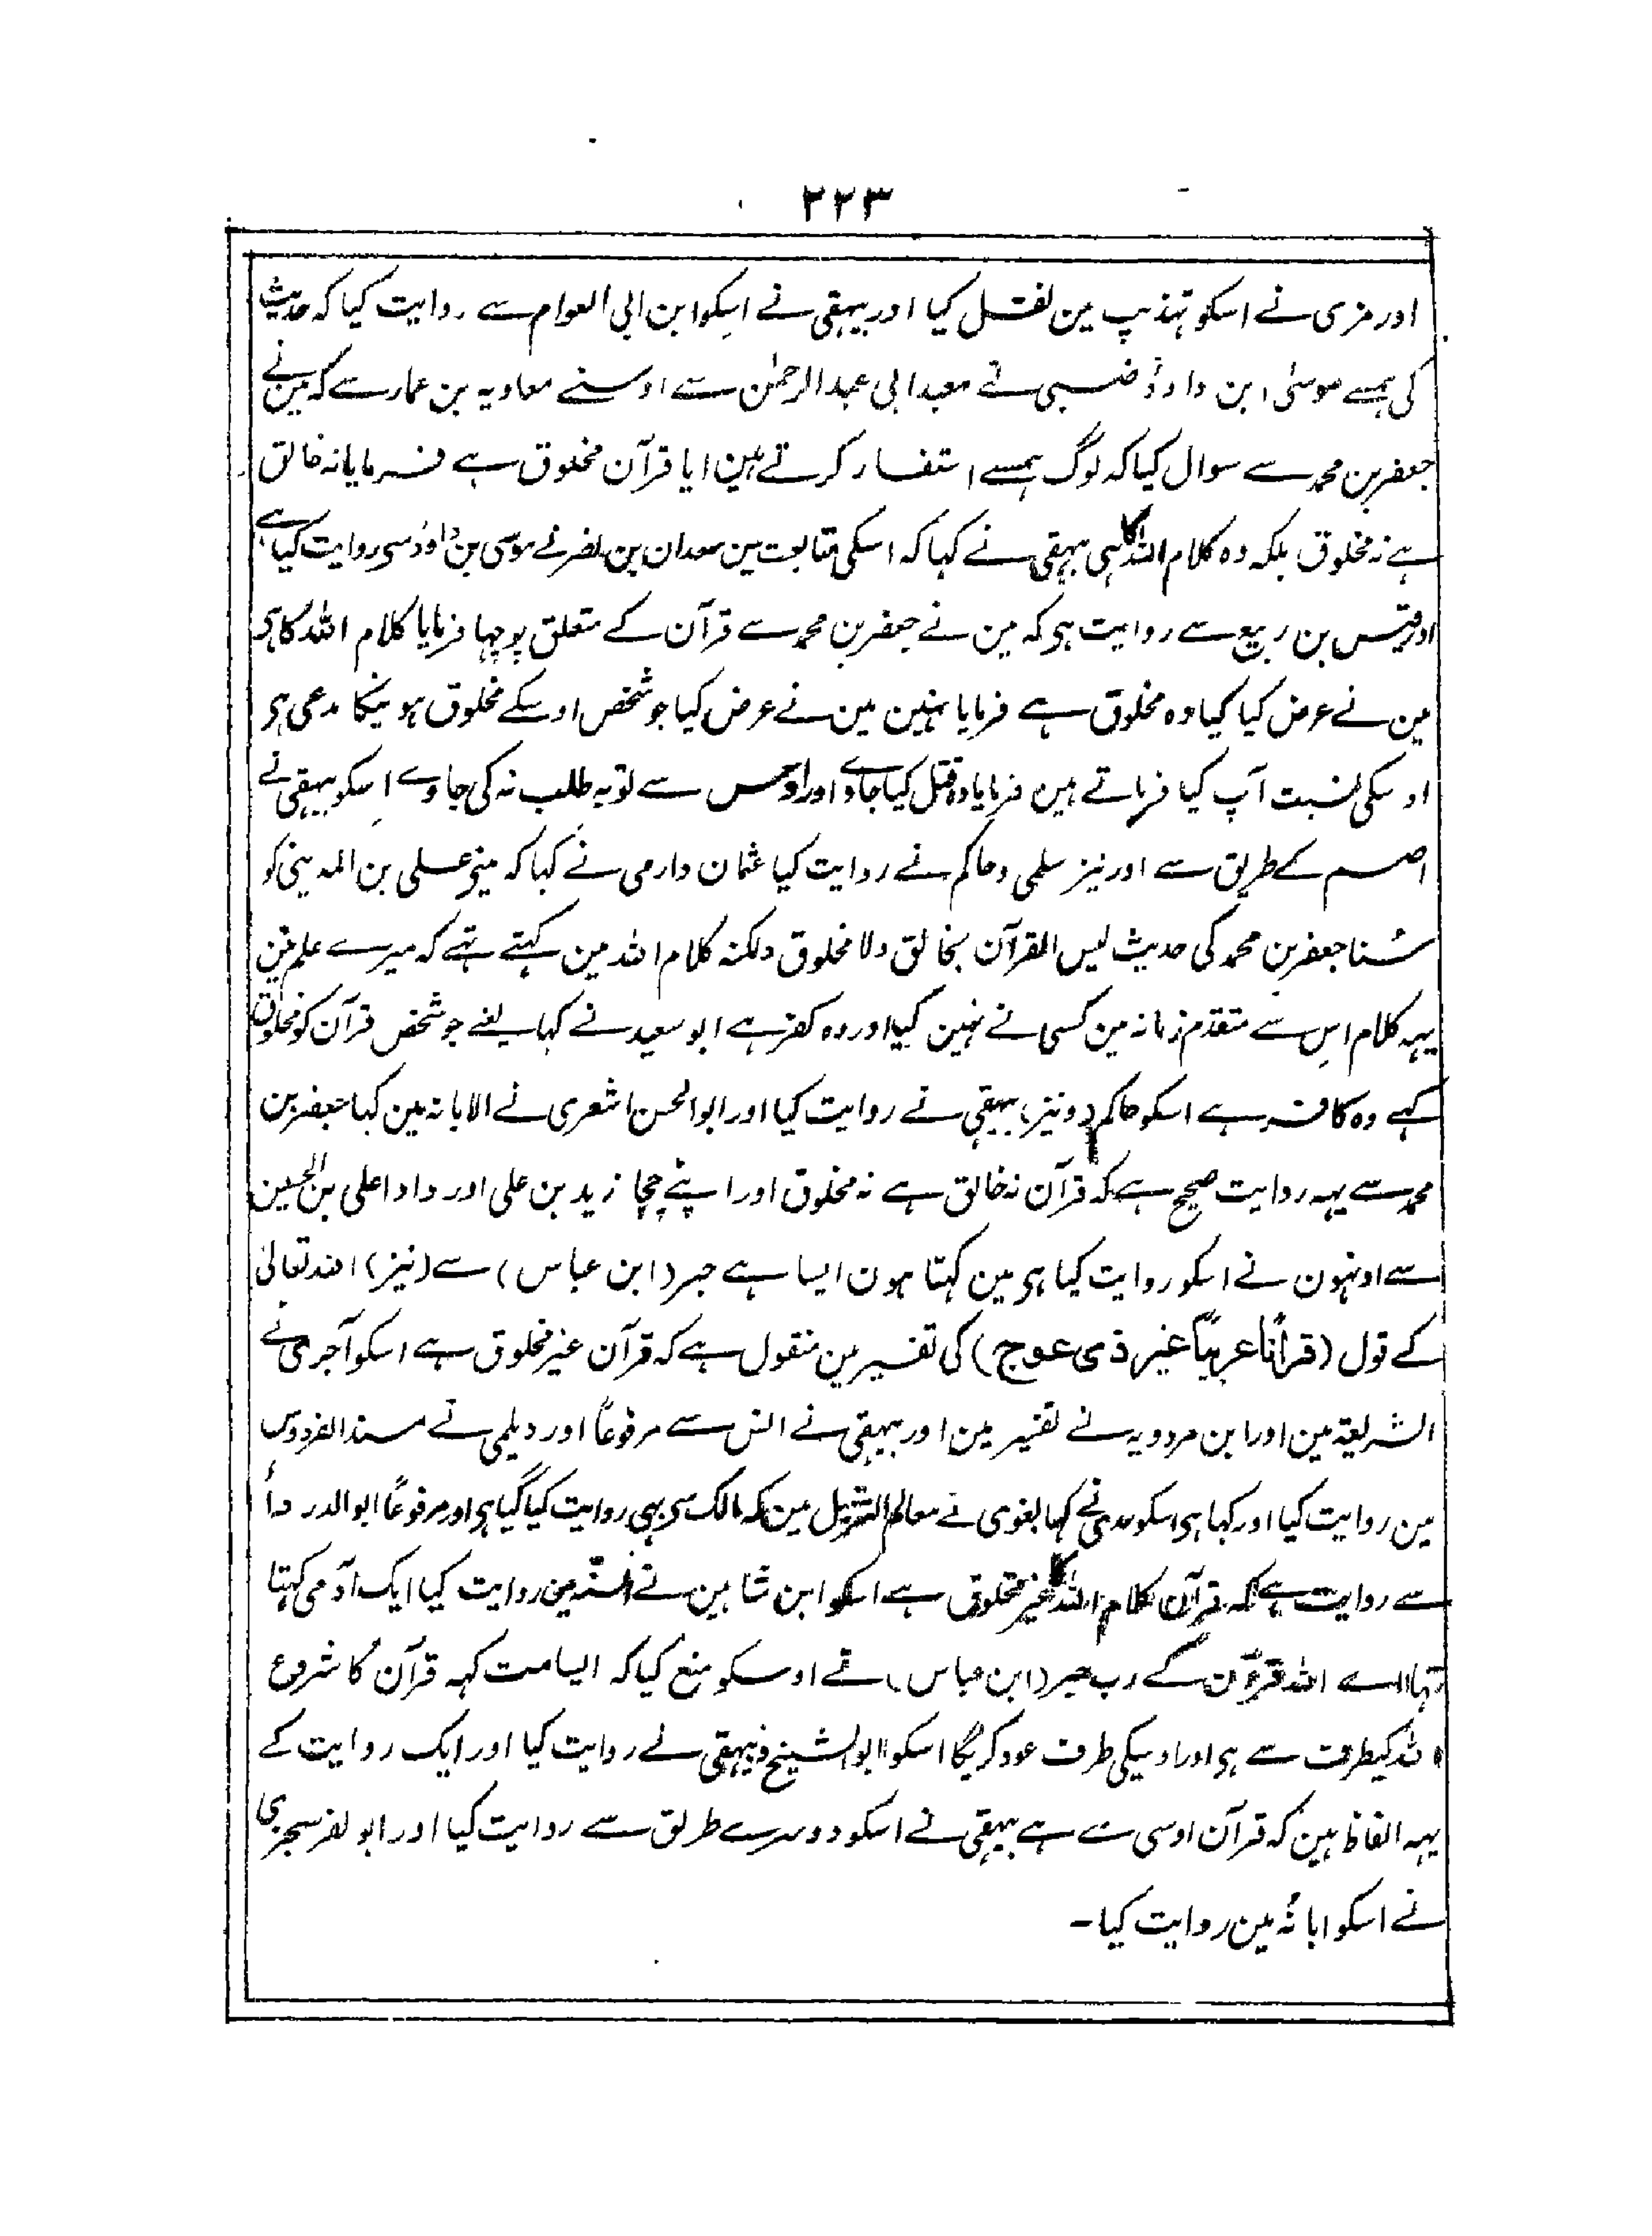 ۲۲۳
اور مزی نے اسکو تہذیب مین نقل کیا اور بیہقی نے اسکو ابن ابی العوام سے روایت کیا کہ حدیث
کی ہمسے موسیٰ ابن داؤد ضبی نے معبد ابی عبدالرحمٰن سے اوسنے معاویہ بن عمار سے کہ مین نے
جعفر بن محمد سے سوال کیا کہ لوگ ہمسے استفسار کرتے ہین ایا قرآن مخلوق ہے فرمایا نہ خالق
ہے نہ مخلوق بلکہ وہ کلام اللہ کا ہی بیہقی نے کہا کہ اسکی متابعت مین سعدان بن نضر نے موسی بن داؤد سی روایت کیا ہے
اور قیس بن ربیع سے روایت ہی کہ مین نے جعفر بن محمد سے قرآن کے متعلق پوچہا فرمایا کلام اللہ کا ہی
مین نے عرض کیا کیا وہ مخلوق ہے فرمایا نہین مین نے عرض کیا جو شخص اوسکے مخلوق ہونیکا مدعی ہی
اوسکی نسبت آپ کیا فرماتے ہین فرمایا وہ قتل کیا جاوے اور اوس سے توبہ طلب نہ کی جاوے اسکو بیہقی نے
اصم کے طریق سے اور نیز سلمی و حاکم نے روایت کیا عثمان دارمی نے کہا کہ مینے علی بن المدینی کو
سُنا جعفر بن محمد کی حدیث لیس القرآن بخالق ولا مخلوق ولکنہ کلام اللہ مین کہتے تہے کہ میرے علم مین
یہہ کلام اس سے متقدم زمانہ مین کسی نے نہین کیا اور وہ کفر ہے ابو سعید نے کہا یعنے جو شخص قرآن کو مخلوق
کہے وہ کافر ہے اسکو حاکم (ونیز) بیہقی نے روایت کیا اور ابوالحسن اشعری نے الابانہ مین کہا جعفر بن
محمد سے یہہ روایت صحیح ہے کہ قرآن نہ خالق ہے نہ مخلوق اور اپنے چچا زید بن علی اور دادا علی بن الحسین
سے اونہون نے اسکو روایت کیا ہی مین کہتا ہون ایسا ہے حبر (ابن عباس) سے (نیز) اللہ تعالیٰ
کے قول (قراٰنًا عربیًا غیر ذی عوج) کی تفسیر مین منقول ہے کہ قرآن غیر مخلوق ہے اسکو آجری نے
الشریعۃ مین اور ابن مردویہ نے تفسیر مین اور بیہقی نے انس سے مرفوعاً اور دیلمی نے مسند الفردوس
مین روایت کیا اور کہا ہی اسکو عدی نے کہا بغوی نے معالم التنزیل مین کہ مالک سی بہی روایت کیا گیا ہی اور مرفوعًا ابوالدرداءٔ
سے روایت ہے کہ قرآن کلام اللہ کا غیر مخلوق ہے اسکو ابن شاہین نے السنّہ مین روایت کیا ایک آدمی کہتا
تہا اے اللہ قرآن کے رب حبر (ابن عباس) نے اوسکو منع کیا کہ ایسا مت کہہ قرآن کا شروع
اللہ کیطرف سے ہی اور اوسیکی طرف عود کریگا اسکو ابوالشیخ و بیہقی نے روایت کیا اور ایک روایت کے
یہہ الفاظ ہین کہ قرآن اوسی سے ہے بیہقی نے اسکو دوسرے طریق سے روایت کیا اور ابو نصر سجزی
نے اسکو ابانہ مین روایت کیا۔